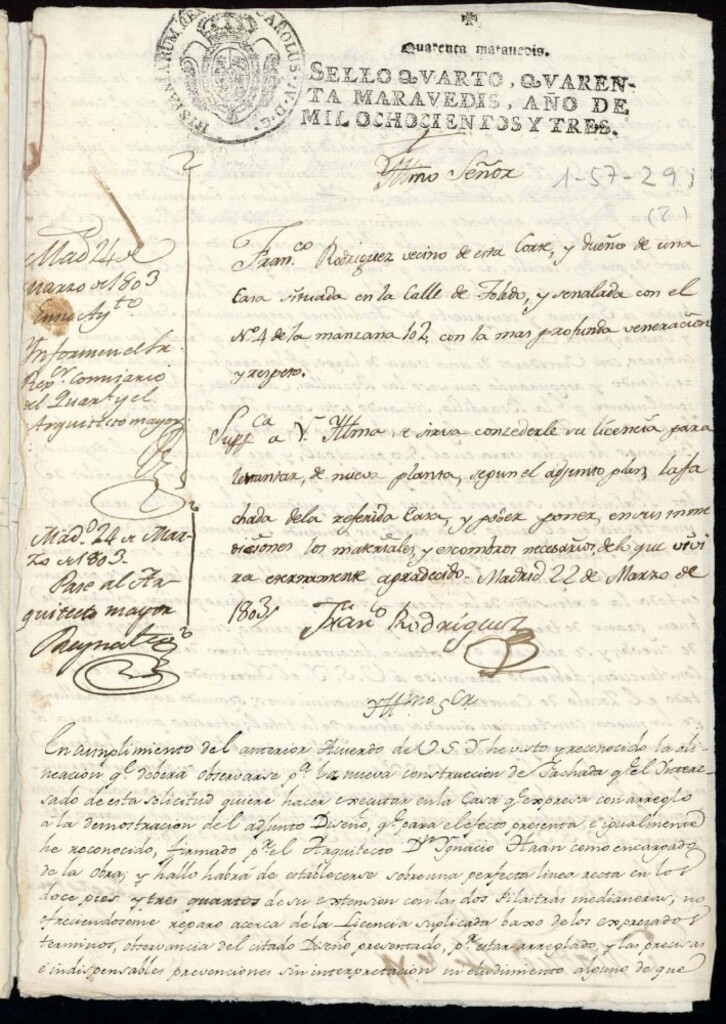 HISPANIARUM REX CAROLUS IV D.G.
Quarenta maravedis.
SELLO QVARTO, QVAREN-
TA MARAVEDIS, AÑO DE
MIL OCHOCIENTOS Y TRES.
Yllmo Señor
1-57-29
(2)
Fran.co Rodriguez vecino de esta Corte, y dueño de una
Casa situada en la Calle de Toledo, y señalada con el
N.º 4 de la manzana 102, con la mas profunda veneracion
y respeto.
Supp.ca a V. Yllma se sirva concederle su licencia para
levantar, de nueva planta, segun el adjunto plan, la fa
chada de la referida Casa, y poder poner, en sus inme
diaciones los materiales, y escombros necesarios, de lo que vivi
ra eternamente agradecido. Madrid 22 de Marzo de
1803.
Fran.co Rodriguez
Mad.d 24 de
Marzo de 1803
En su Ay.to
Informen el Sr.
Rex.or Comisario
del Quart.l y el
Arquitecto mayor
Mad.d 24 de Mar-
zo de 1803.
Pase al Ar-
quitecto mayor
Reynalte
Yllmo Sor
En cumplimiento del anterior Acuerdo de V.S.Y. he visto y reconocido la ali-
neacion q.e deberá observarse p.a la nueva construccion de Fachada q.e el Intere-
sado de esta solicitud quiere hacer executar en la Casa q.e expresa con arreglo
a la demostracion del adjunto Diseño, q.e para el efecto presenta, e igualmente
he reconocido, firmado p.r el Arquitecto D.n Ygnacio Haan como encargado
de la obra; y hallo habrá de establecerse sobre una perfecta linea recta en los
doce pies y tres quartos de su extension con las dos Pilastras medianeras; no
ofreciendoseme reparo acerca de la Licencia suplicada baxo de los expresados
terminos, observancia del citado Diseño presentado, p.r estar arreglado, y las precisas
e indispensables prevenciones sin interpretacion ni eludimiento alguno de que